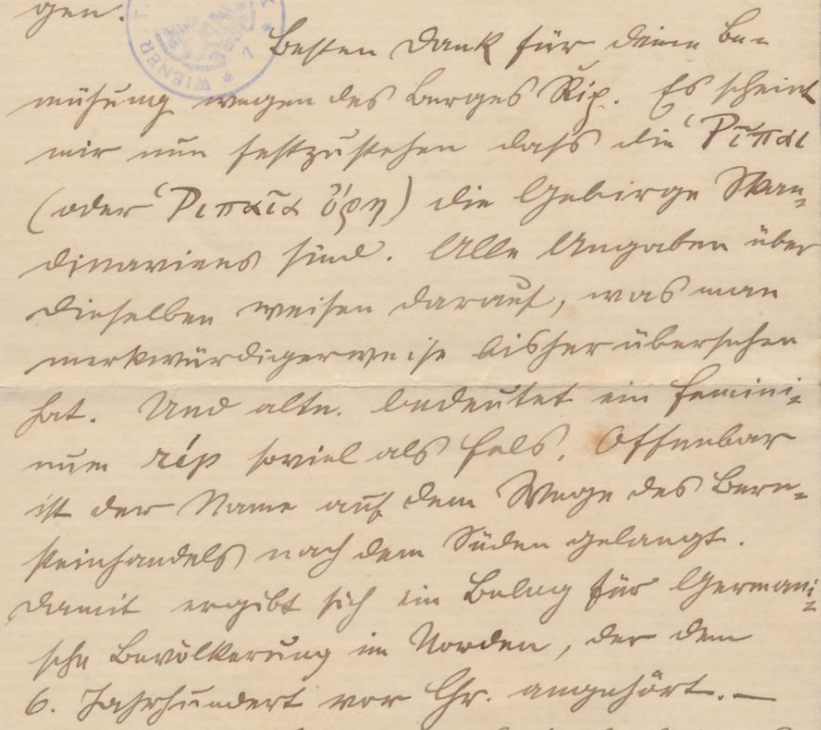 gen.
Besten Dank für deine Be-
mühung wegen des Berges Řip. Es scheint
mir nun festzustehen dass die Ῥῖπαι
(oder Ῥιπαῖα ὄρη) die Gebirge Skan-
dinaviens sind. Alle Angaben über
dieselben weisen darauf, was man
merkwürdigerweise bisher übersehen
hat. Und altn. bedeutet ein Femini-
num ríp soviel als Fels. Offenbar
ist der Name auf dem Wege des Bern-
steinhandels nach dem Süden gelangt.
Damit ergibt sich ein Beleg für Germani-
sche Bevölkerung im Norden, der dem
6. Jahrhundert vor Chr. angehört. —
WIENER